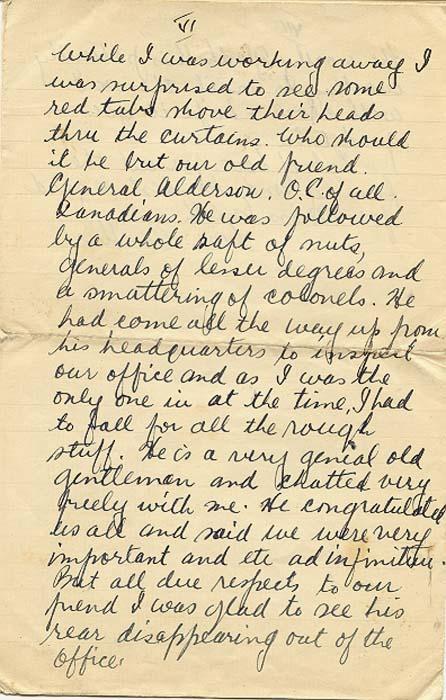 VI
While I was working away I
was surprised to see some
red tabs shove their heads
thru the curtains. Who should
it be but our old friend.
General Alderson. O.C. of all.
Canadians. He was followed
by a whole raft of nuts,
generals of lesser degrees and
a smattering of colonels. He
had come all the way up from
his headquarters to inspect
our office and as I was the
only one in at the time, I had
to fall for all the rough
stuff. He is a very genial old
gentleman and chatted very
freely with me. He congratulated
us all and said we were very
important and etc ad infinitum.
But all due respects to our
friend I was glad to see his
rear disappearing out of the
office.